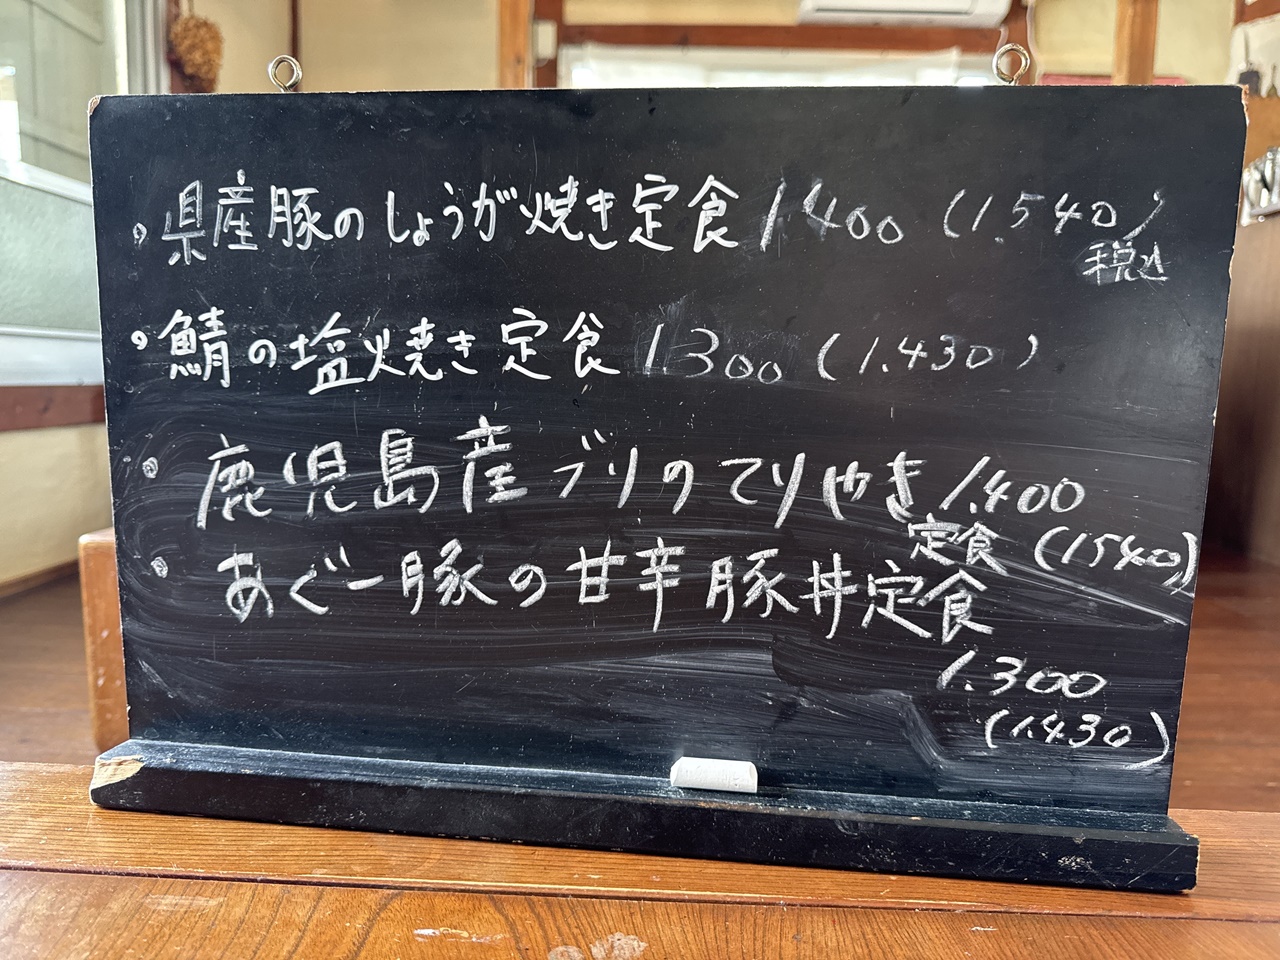 ・県産豚のしょうが焼き定食 1400 (1.540)
税込
・鯖の塩焼き定食 1300 (1.430)
・鹿児島産ブリのてりやき 1.400
定食 (1540)
・あぐー豚の甘辛豚丼定食
1.300
(1.430)